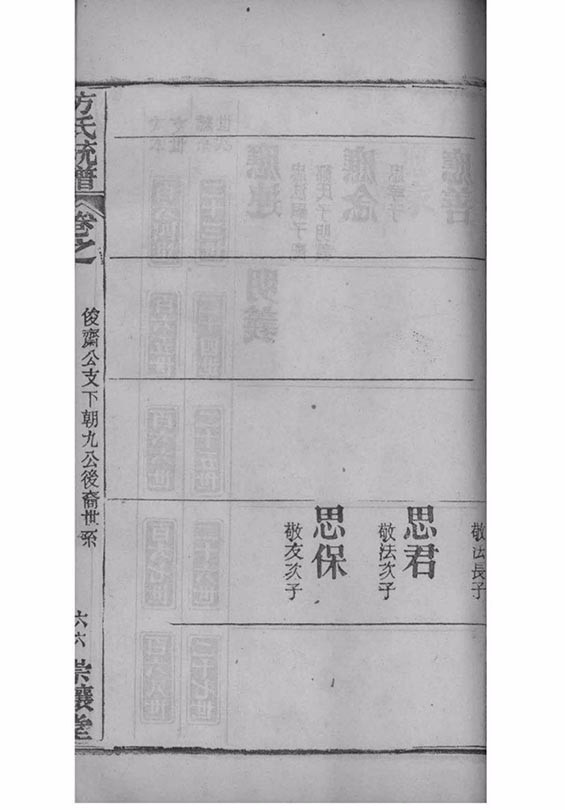 敬法長子
思君
敬法次子
思保
敬友次子
方氏統譜
卷之
俊齋公支下朝九公後裔世系
六六
崇讓堂